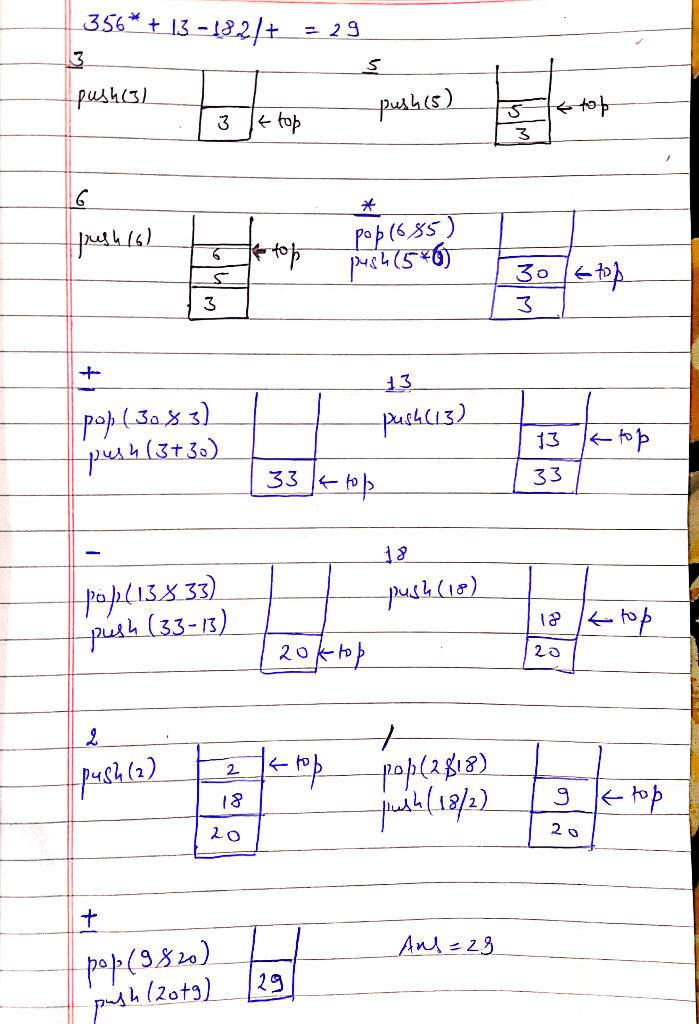 356* + 13 - 182/+ = 29
3
push(3)
3 ← top
5
push(5)
5 ← top
3
6
push(6)
6 ← top
5
3
*
pop(6&5)
push(5*6)
30 ← top
3
+
pop(30&3)
push(3+30)
33 ← top
13
push(13)
13 ← top
33
-
pop(13&33)
push(33-13)
20 ← top
18
push(18)
18 ← top
20
2
push(2)
2 ← top
18
20
/
pop(2&18)
push(18/2)
9 ← top
20
+
pop(9&20)
push(20+9)
29
Ans = 29